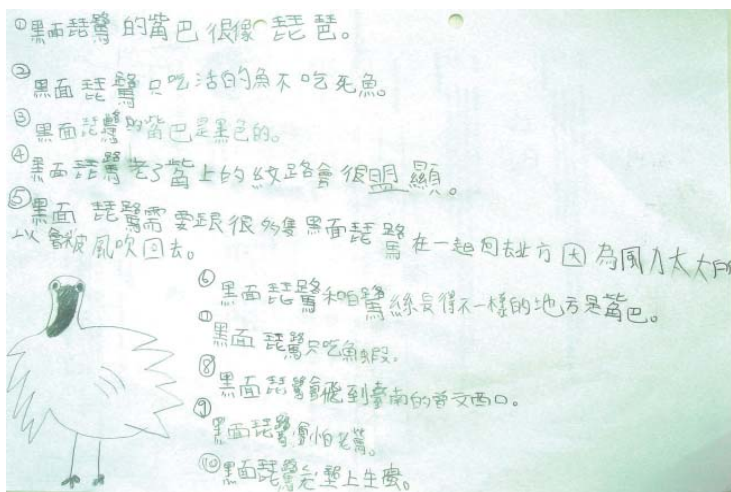 ①黑面琵鷺的嘴巴很像琵琶。
②黑面琵鷺只吃活的魚不吃死魚。
③黑面琵鷺的嘴巴是黑色的。
④黑面琵鷺老了嘴上的紋路會很明顯。
⑤黑面琵鷺需要跟很多隻黑面琵鷺在一起回去北方因為風力太大所
以會被風吹回去。
⑥黑面琵鷺和白鷺絲長得不一樣的地方是嘴巴。
黑面琵鷺只吃魚蝦。
⑧黑面琵鷺會飛到臺南的曾文西口。
⑨黑面琵鷺會怕老鷹。
⑩黑面琵鷺在上生蛋。